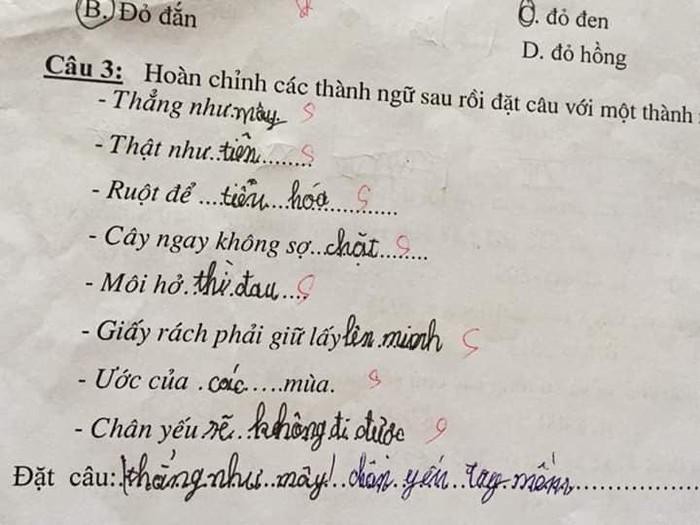 B. Đỏ đắn
C. đỏ đen
D. đỏ hồng
Câu 3: Hoàn chỉnh các thành ngữ sau rồi đặt câu với một thành
- Thẳng như mày S
- Thật như..tiên........ S
- Ruột để ...tiêu...hóa............ S
- Cây ngay không sợ..chặt........ S
- Môi hở.thì.đau.... S
- Giấy rách phải giữ lấy lên minh S
- Ước của .các.....mùa. S
- Chân yếu sẽ..không đi được S
Đặt câu: thẳng như..mây!..chân.yếu..tay.mềm...............